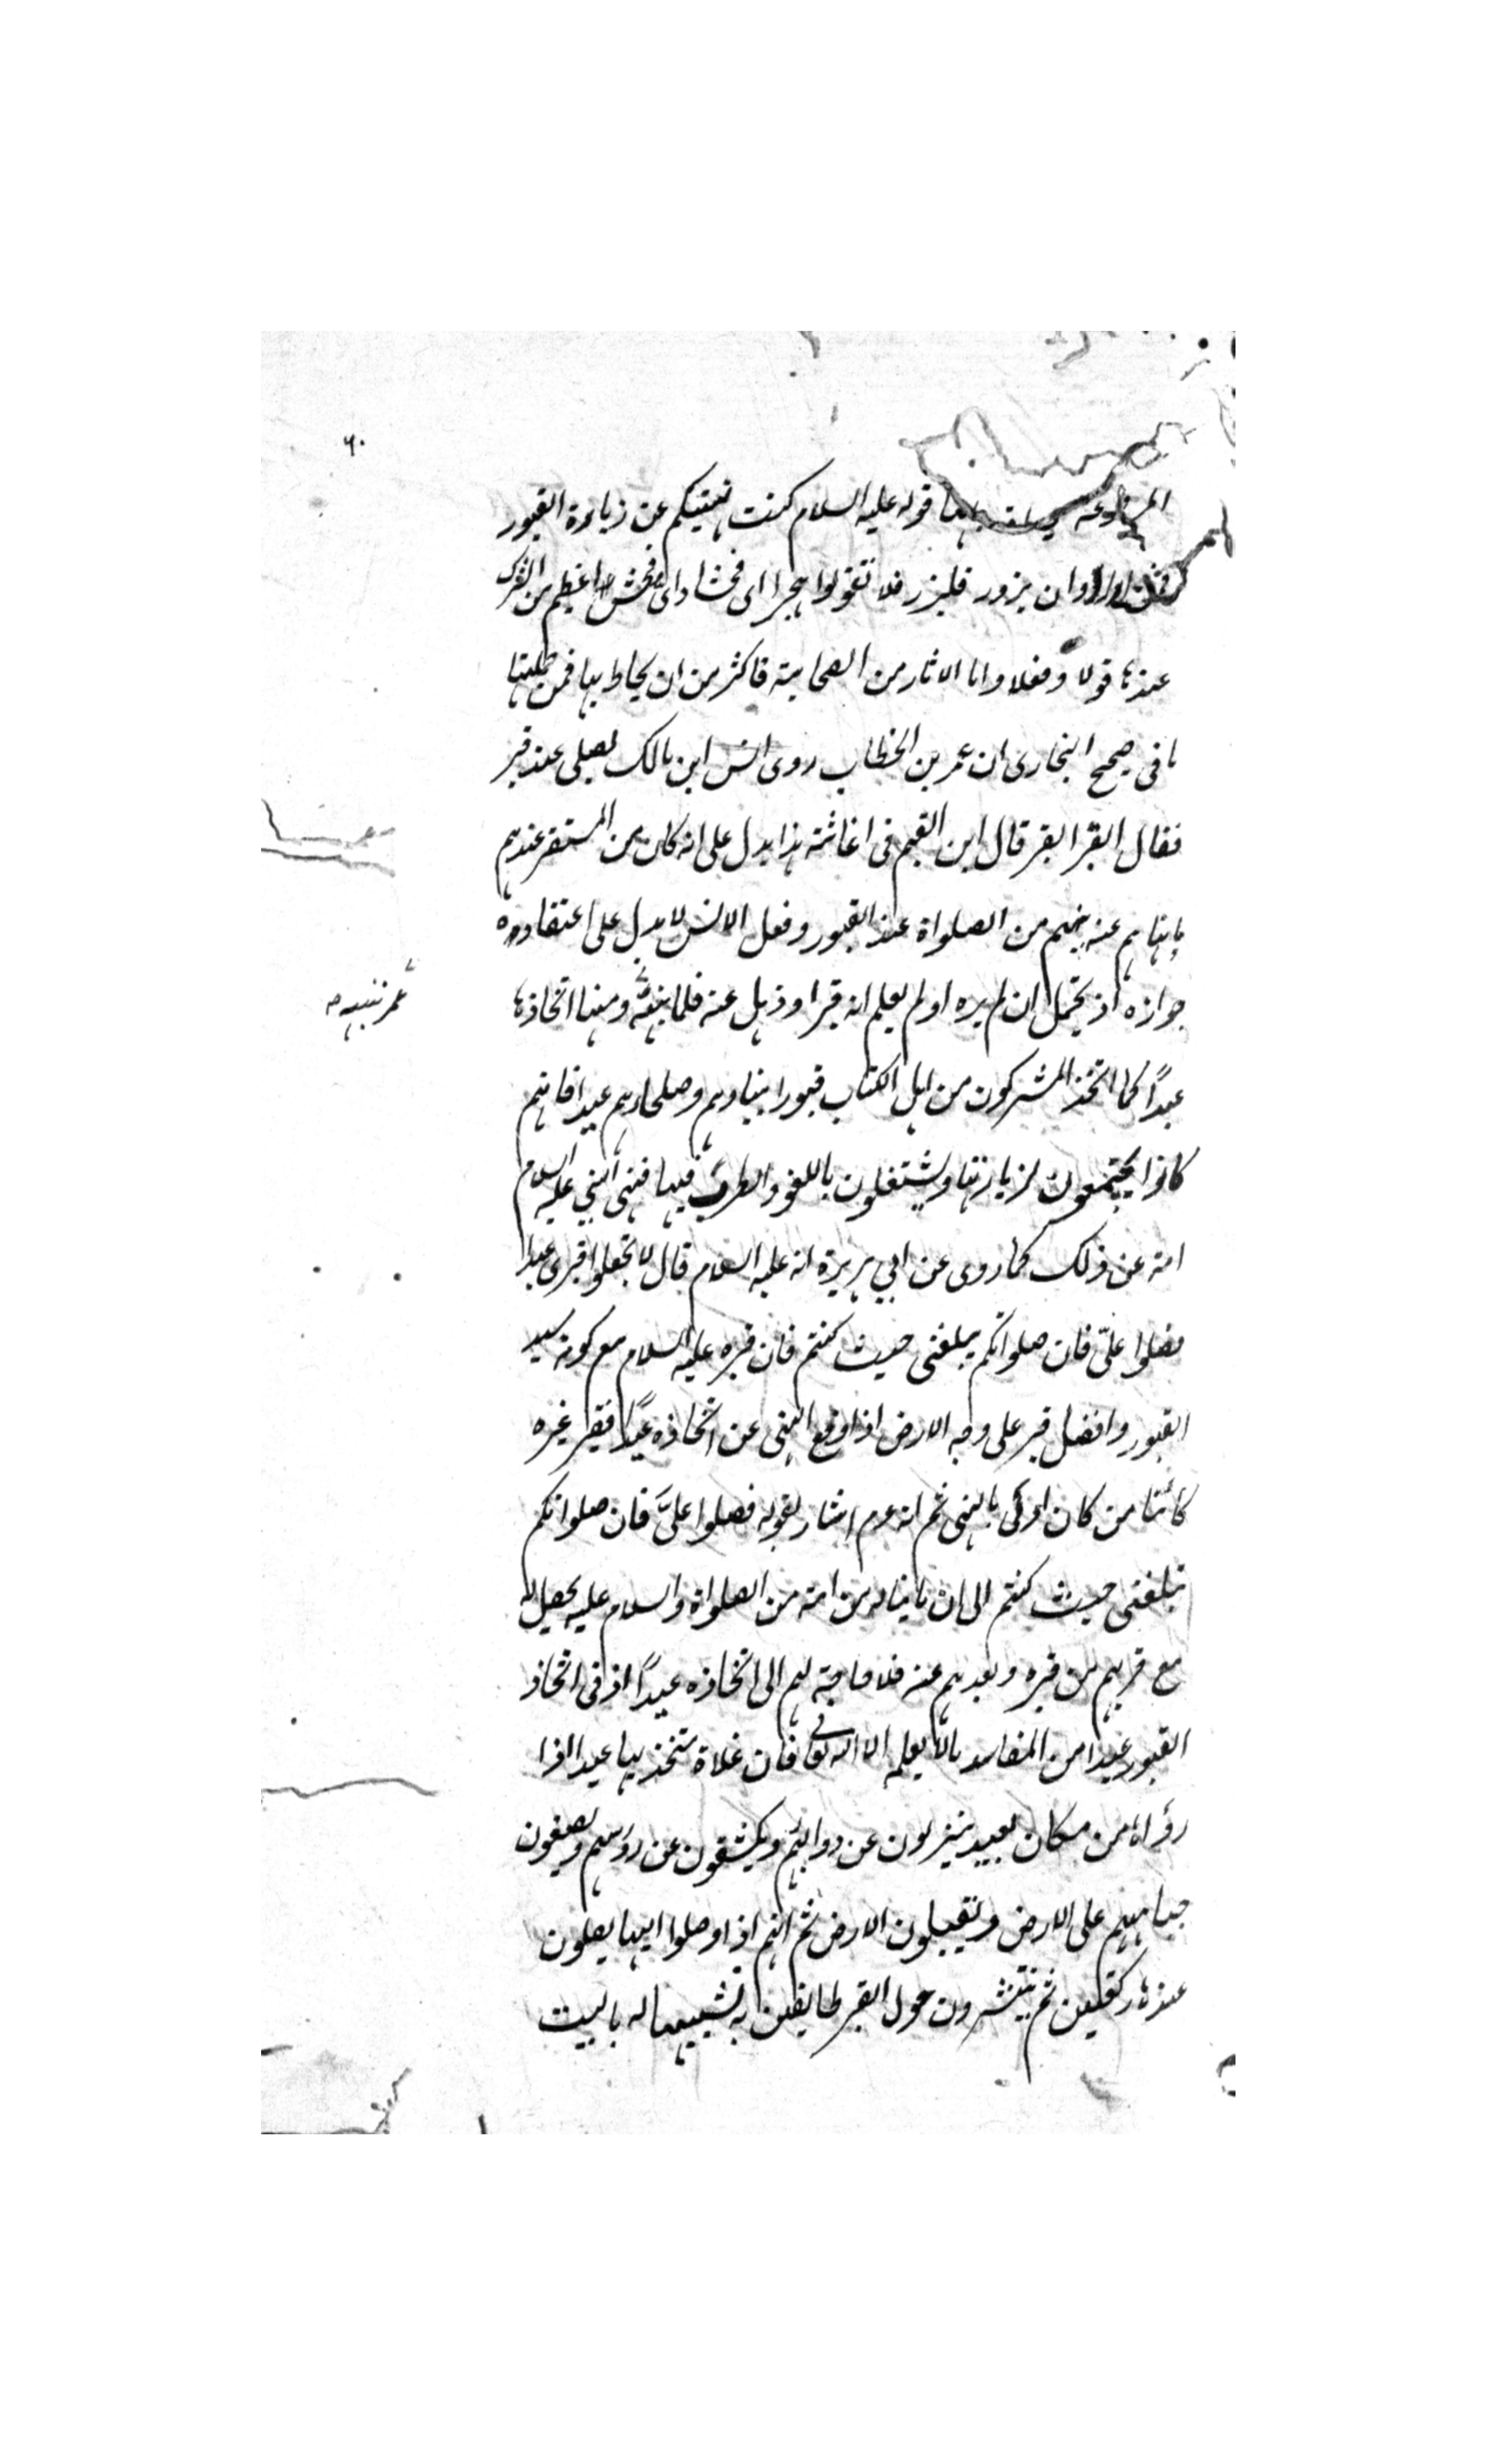 ٦٠
المرفوعة قوله عليه السلام كنت نهيتكم عن زيارة القبور
فمن اراد ان يزور فليزر فلا تقولوا هجرا اى فحشا واى فحش اعظم من الشرك
عندها قولا وفعلا واما الاثار من الصحابة فاكثر من ان يحاط بها فمن جملتها
ما فى صحيح البخارى ان عمر بن الخطاب روى انس ابن مالك يصلى عند قبر
فقال القبر القبر قال ابن القيم فى اغاثته هذا يدل على انه كان من المستقر عندهم
ما نهاهم عنه نبيهم من الصلواة عند القبور وفعل الانس لا يدل على اعتقاده
جوازه اذ يحتمل ان لم يره او لم يعلم انه قبر او ذهل عنه فلما نبهه ومنها اتخاذها
عمر تنبيه صح
عيدًا كما اتخذ المشركون من اهل الكتاب قبور انبياوهم وصلحاوهم عيدا فانهم
كانوا يجتمعون لزيارتها ويشتغلون باللغو والطرب فيها فنهى النبي عليه السلام
امته عن ذلك كما روى عن ابي هريرة انه عليه السلام قال لا تجعلوا قبرى عيدا
فصلوا علىّ فان صلواتكم يبلغنى حيث كنتم فان قبره عليه السلام مع كونه سيد
القبور وافضل قبر على وجه الارض اذا وقع النهى عن اتخاذه عيدًا فقبر غيره
كائنا من كان اولى بالنهى ثم انه عم اشار بقوله فصلوا علىَّ فان صلواتكم
تبلغنى حيث كنتم الى ان ما يناله من امته من الصلواة والسلام عليه يحصل له
مع قربهم من قبره وبعدهم عنه فلا حاجة لهم الى اتخاذه عيدًا اذ فى اتخاذ
القبور عيدا من المفاسد ما لا يعلم الا الله تعالى فان غلاة متخذيها عيدا اذا
رؤاها من مكان بعيد ينزلون عن دوابهم ويكشفون عن روسهم ويضعون
جباههم على الارض ويقبلون الارض ثم انهم اذا وصلوا اليها يصلون
عندها ركعتين ثم ينتشرون حول القبر طايفين به تشبيها له بالبيت